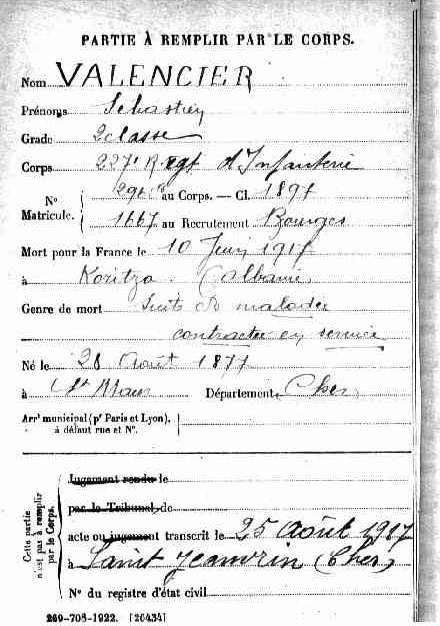 PARTIE À REMPLIR PAR LE CORPS.
Nom VALENCIER
Prénoms Sébastien
Grade 2 classe
Corps 227e Regt d'Infanterie
No Matricule. { au Corps. — Cl. 1897
1667 au Recrutement Bourges
Mort pour la France le 10 Juin 1917
à Koritza (Albanie)
Genre de mort Suite de maladie
contractée en service
Né le 28 Août 1877
à St Maur Département Cher
Arrt municipal (pr Paris et Lyon), à défaut rue et No.
Cette partie n'est pas à remplir par le Corps.
Jugement rendu le
par le Tribunal de
acte ou jugement transcrit le 25 Août 1917
à Saint Jeanvrin (Cher)
No du registre d'état civil
269-708-1922. [26434]